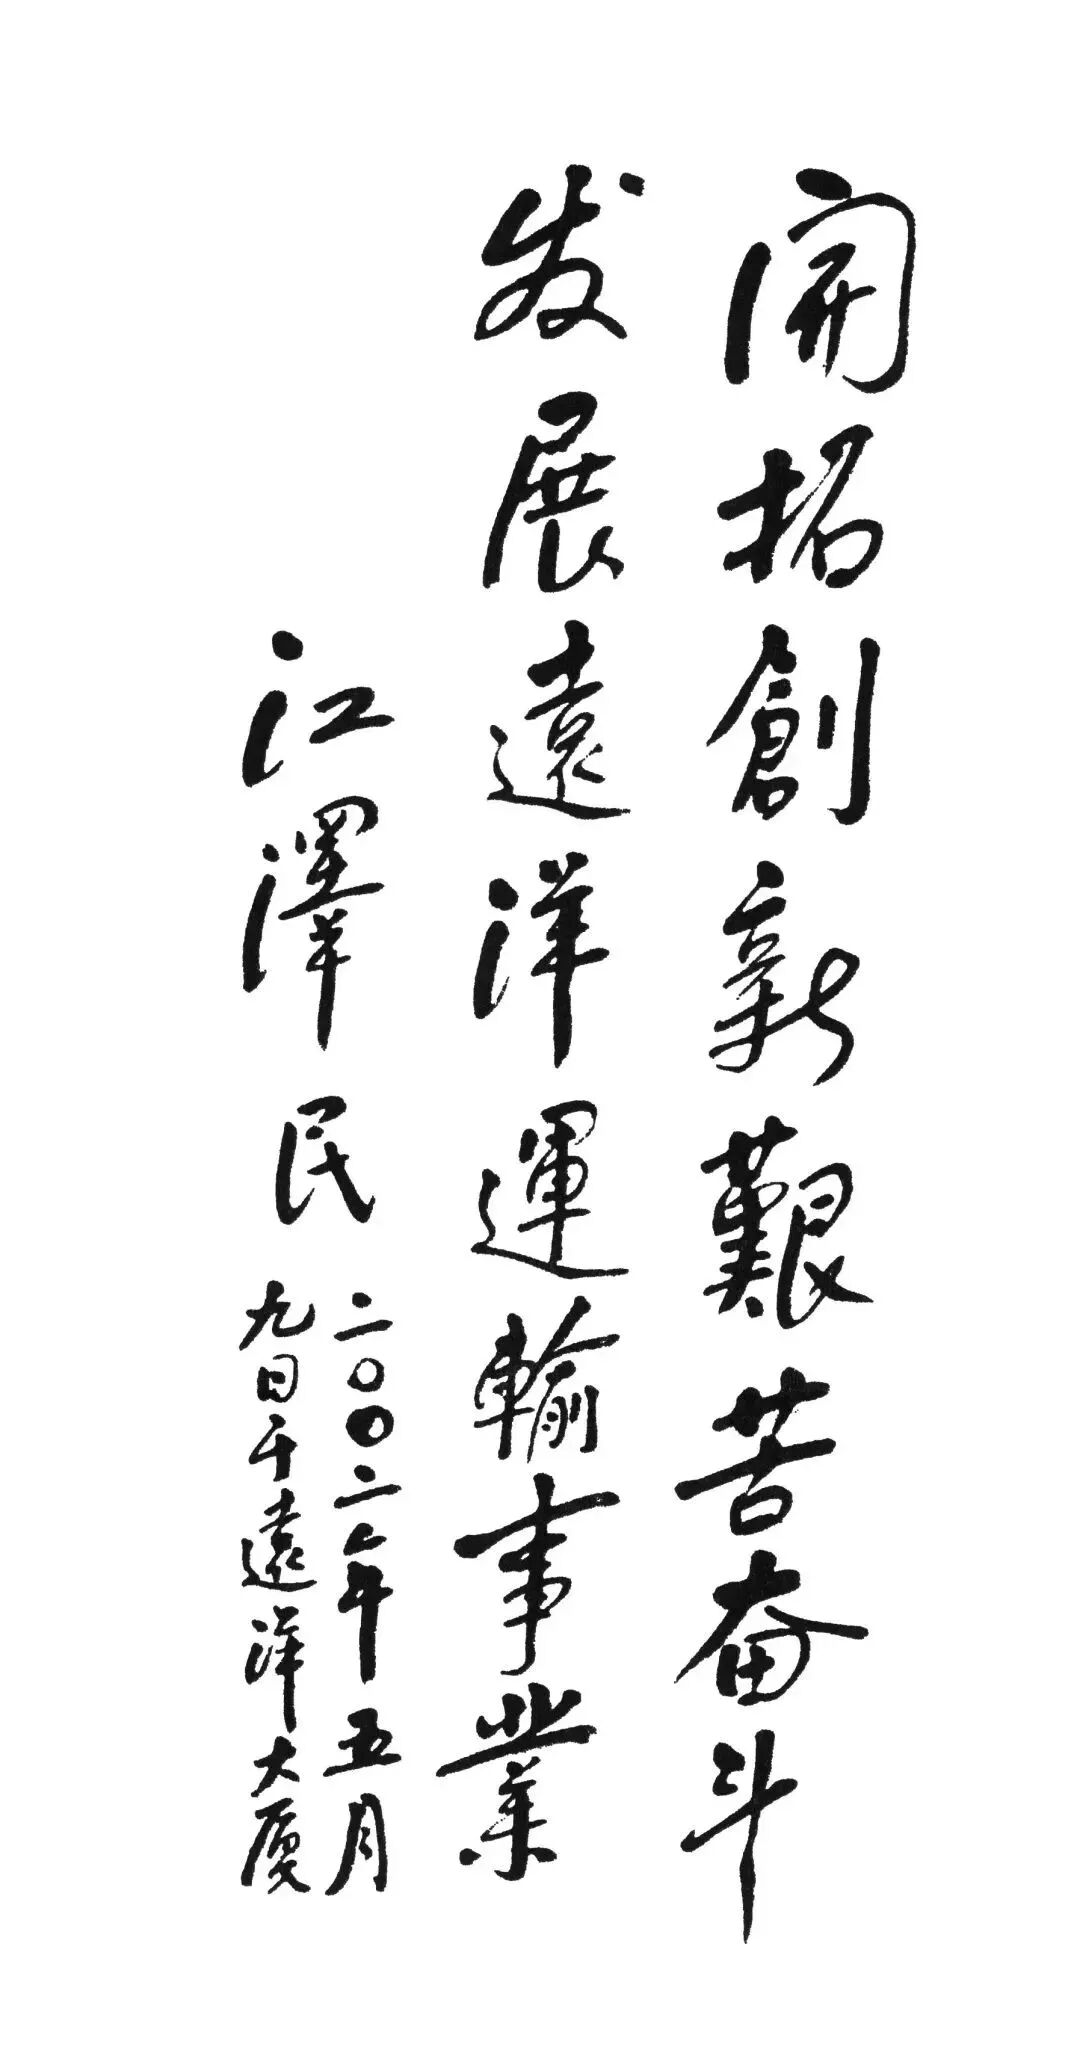 開拓創新艱苦奋斗
发展遠洋運輸事業
江澤民
二〇〇二年五月
九日于遠洋大厦